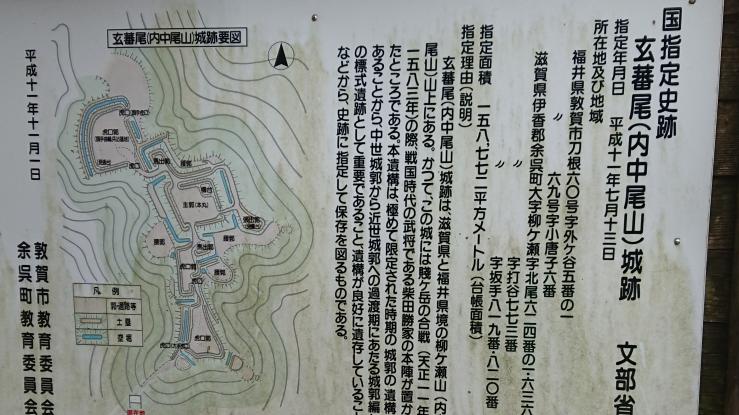 国指定史跡
玄蕃尾(内中尾山)城跡
文部省
指定年月日 平成十一年七月十三日
所在地及び地域
福井県敦賀市刀根六〇号字外ケ谷五番の一
〃 六九号字小唐子六番
滋賀県伊香郡余呉町大字柳ケ瀬字北尾六二四番の一・六三六
〃 字打谷七七三番
〃 字坂手八一九番・八二〇番
指定面積 一五八,七七二平方メートル(台帳面積)
指定理由(説明)
玄蕃尾(内中尾山)城跡は、滋賀県と福井県境の柳ケ瀬山(内
尾山)山上にある。かつて、この城には賤ケ岳の合戦(天正一一年
一五八三年)の際、戦国時代の武将である柴田勝家の本陣が置か
たところである。本遺構は、極めて限定された時期の城郭の遺構
あることから、中世城郭から近世城郭への過渡期にあたる城郭編
の標式遺跡として重要であること、遺構が良好に遺存しているこ
などから、史跡に指定して保存を図るものである。
玄蕃尾(内中尾山)城跡要図
虎口郭
虎口
馬出郭
腰郭
櫓台
主郭(本丸)
張出郭
腰郭
馬出郭
腰郭
虎口郭
虎口
虎口郭
凡例
郭・道路等
土塁
空堀
現在地
平成十一年十二月一日
敦賀市教育委員会
余呉町教育委員会